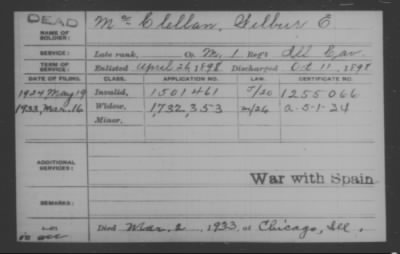 DEAD
NAME OF SOLDIER: McClellan, Wilbur E
SERVICE: Late rank, Co. M, 1 Reg't Ill Cav.
TERM OF SERVICE: Enlisted April 26, 1898 Discharged Oct 11, 1898
DATE OF FILING. CLASS. APPLICATION NO. LAW. CERTIFICATE NO.
1924 May 19 Invalid, 1501461 1255066
1933, Mar. 16 Widow, 1,732,353 a-5-1-24
Minor,
ADDITIONAL SERVICES:
War with Spain
REMARKS:
Died Mar. 2, 1933, at Chicago, Ill.